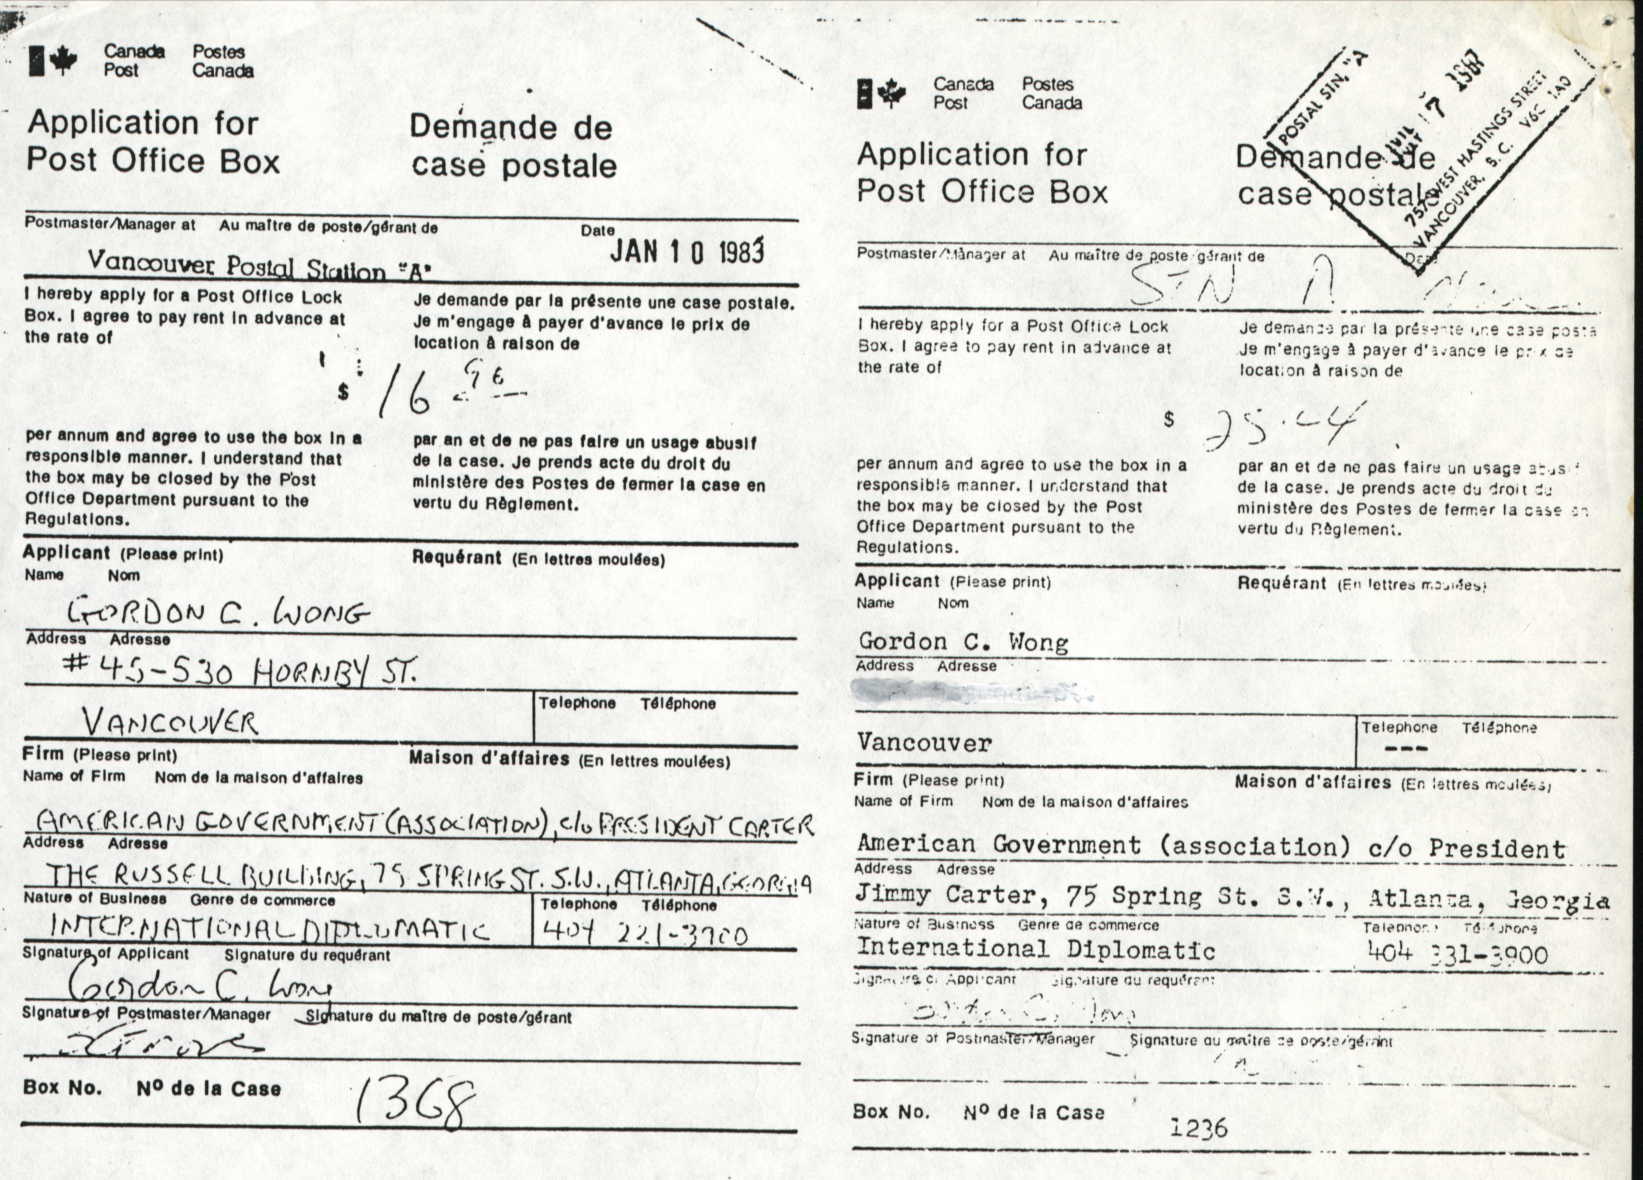 Canada Postes
Post Canada
Application for Demande de
Post Office Box case postale
Postmaster/Manager at Au maître de poste/gérant de Date
Vancouver Postal Station "A" JAN 10 1983
I hereby apply for a Post Office Lock
Box. I agree to pay rent in advance at
the rate of
Je demande par la présente une case postale.
Je m'engage à payer d'avance le prix de
location à raison de
$ 16
per annum and agree to use the box in a
responsible manner. I understand that
the box may be closed by the Post
Office Department pursuant to the
Regulations.
par an et de ne pas faire un usage abusif
de la case. Je prends acte du droit du
ministère des Postes de fermer la case en
vertu du Règlement.
Applicant (Please print) Requérant (En lettres moulées)
Name Nom
GORDON C. WONG
Address Adresse
#45-530 HORNBY ST.
Telephone Téléphone
VANCOUVER
Firm (Please print) Maison d'affaires (En lettres moulées)
Name of Firm Nom de la maison d'affaires
AMERICAN GOVERNMENT (ASSOCIATION), c/o PRESIDENT CARTER
Address Adresse
THE RUSSELL BUILDING, 75 SPRING ST. S.W., ATLANTA, GEORGIA
Nature of Business Genre de commerce Telephone Téléphone
INTERNATIONAL DIPLOMATIC 404 221-3900
Signature of Applicant Signature du requérant
Gordon C. Wong
Signature of Postmaster/Manager Signature du maître de poste/gérant
Box No. Nº de la Case 1368
Canada Postes
Post Canada
POSTAL STN. "A"
757 WEST HASTINGS STREET
VANCOUVER, B. C. V6C 1A0
Application for Demande de
Post Office Box case postale
Postmaster/Manager at Au maître de poste gérant de
STN A
I hereby apply for a Post Office Lock
Box. I agree to pay rent in advance at
the rate of
Je demande par la présente une case posta
Je m'engage à payer d'avance le prix de
location à raison de
$ 25.44
per annum and agree to use the box in a
responsible manner. I understand that
the box may be closed by the Post
Office Department pursuant to the
Regulations.
par an et de ne pas faire un usage abusif
de la case. Je prends acte du droit du
ministère des Postes de fermer la case en
vertu du Règlement.
Applicant (Please print) Requérant (En lettres moulées)
Name Nom
Gordon C. Wong
Address Adresse
Telephone Téléphone
Vancouver ---
Firm (Please print) Maison d'affaires (En lettres moulées)
Name of Firm Nom de la maison d'affaires
American Government (association) c/o President
Address Adresse
Jimmy Carter, 75 Spring St. S.W., Atlanta, Georgia
Nature of Business Genre de commerce Telephone Téléphone
International Diplomatic 404 331-3900
Signature of Applicant Signature du requérant
Signature of Postmaster/Manager Signature du maître de poste/gérant
Box No. Nº de la Case 1236